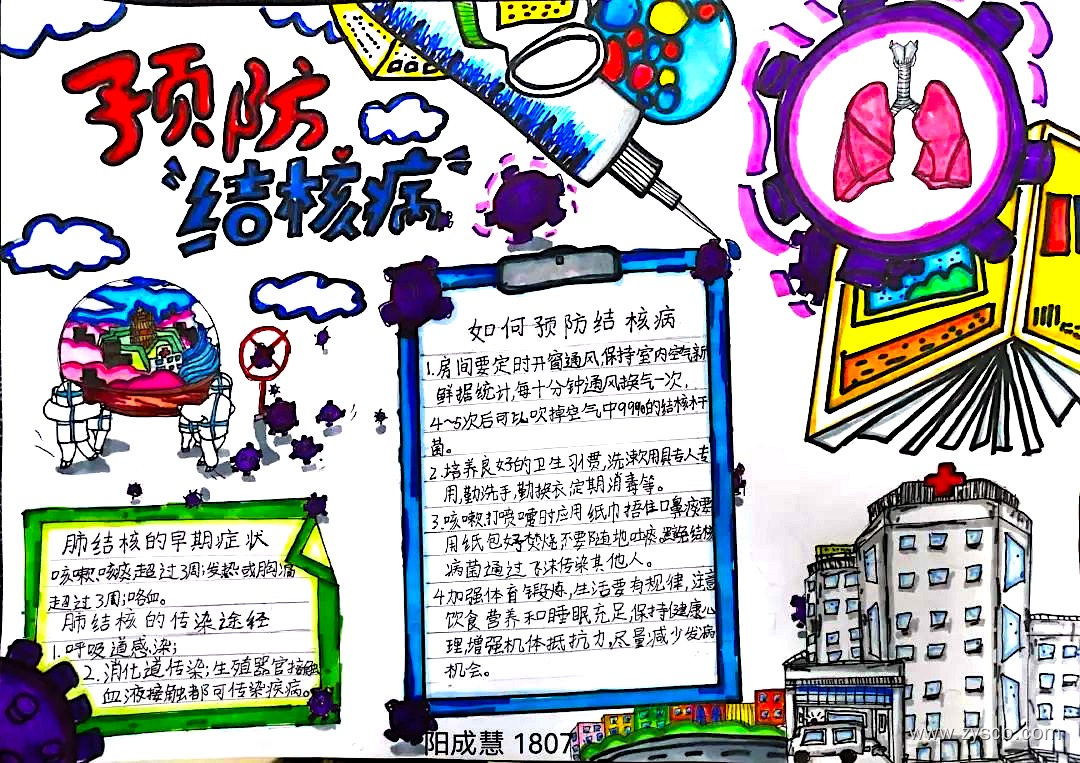 预防
结核病
如何预防结核病
1.房间要定时开窗通风,保持室内空气新
鲜据统计,每十分钟通风换气一次,
4~5次后可以吹掉空气中99%的结核杆
菌。
2.培养良好的卫生习惯,洗漱用具专人专
用,勤洗手,勤换衣定期消毒等。
3.咳嗽,打喷嚏时应用纸巾捂住口鼻痰要
用纸包好焚烧不要随地吐痰,避免结核
病菌通过飞沫传染其他人。
4.加强体育锻炼,生活要有规律,注意
饮食营养和睡眠充足保持健康心
理,增强机体抵抗力,尽量减少发病
机会。
肺结核的早期症状
咳嗽.咳痰超过3周;发热或胸痛
超过3周;咯血。
肺结核的传染途经
1.呼吸道感染;
2.消化道传染;生殖器官接触
血液接触都可传染疾病。
阳成慧 1807
www.zyscb.com